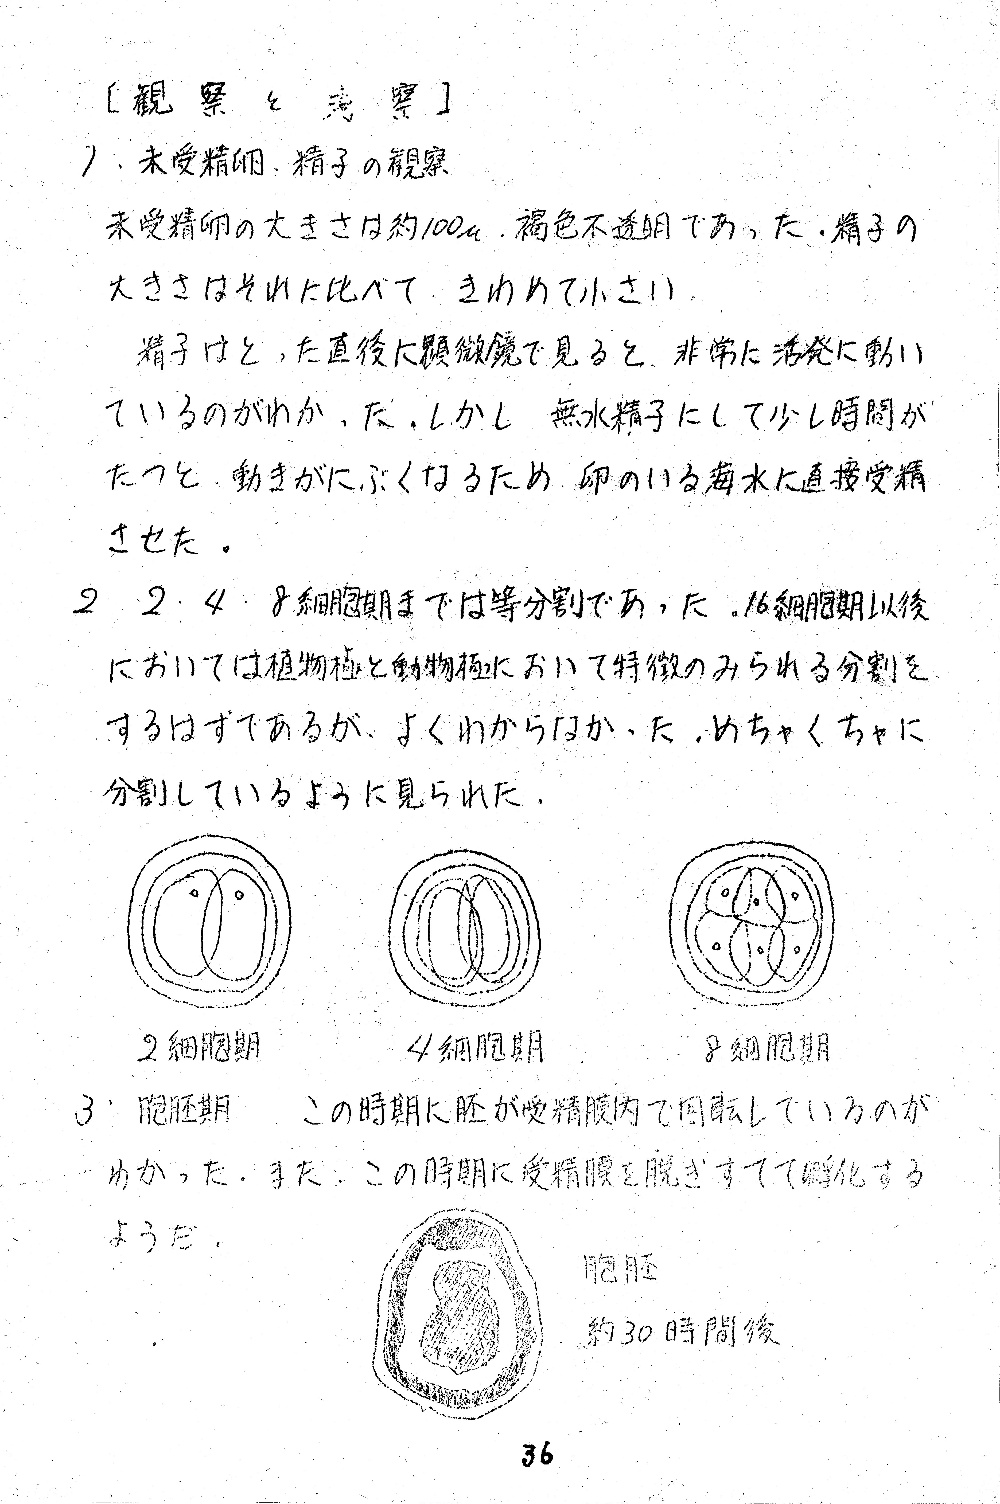 [観察と考察]
1. 未受精卵、精子の観察
未受精卵の大きさは約100μ、褐色不透明であった。精子の
大きさはそれに比べて、きわめて小さい。
精子はとった直後に顕微鏡で見ると、非常に活発に動い
ているのがわかった。しかし 無水精子にして少し時間が
たつと、動きがにぶくなるため 卵のいる海水に直接受精
させた。
2 2・4・8細胞期までは等分割であった。16細胞期以後
においては植物極と動物極において特徴のみられる分割を
するはずであるが、よくわからなかった。めちゃくちゃに
分割しているように見られた。
2細胞期 4細胞期 8細胞期
3. 胞胚期 この時期に胚が受精膜内で回転しているのが
わかった。また、この時期に受精膜を脱ぎすてて孵化する
ようだ。
胞胚
約30時間後
36